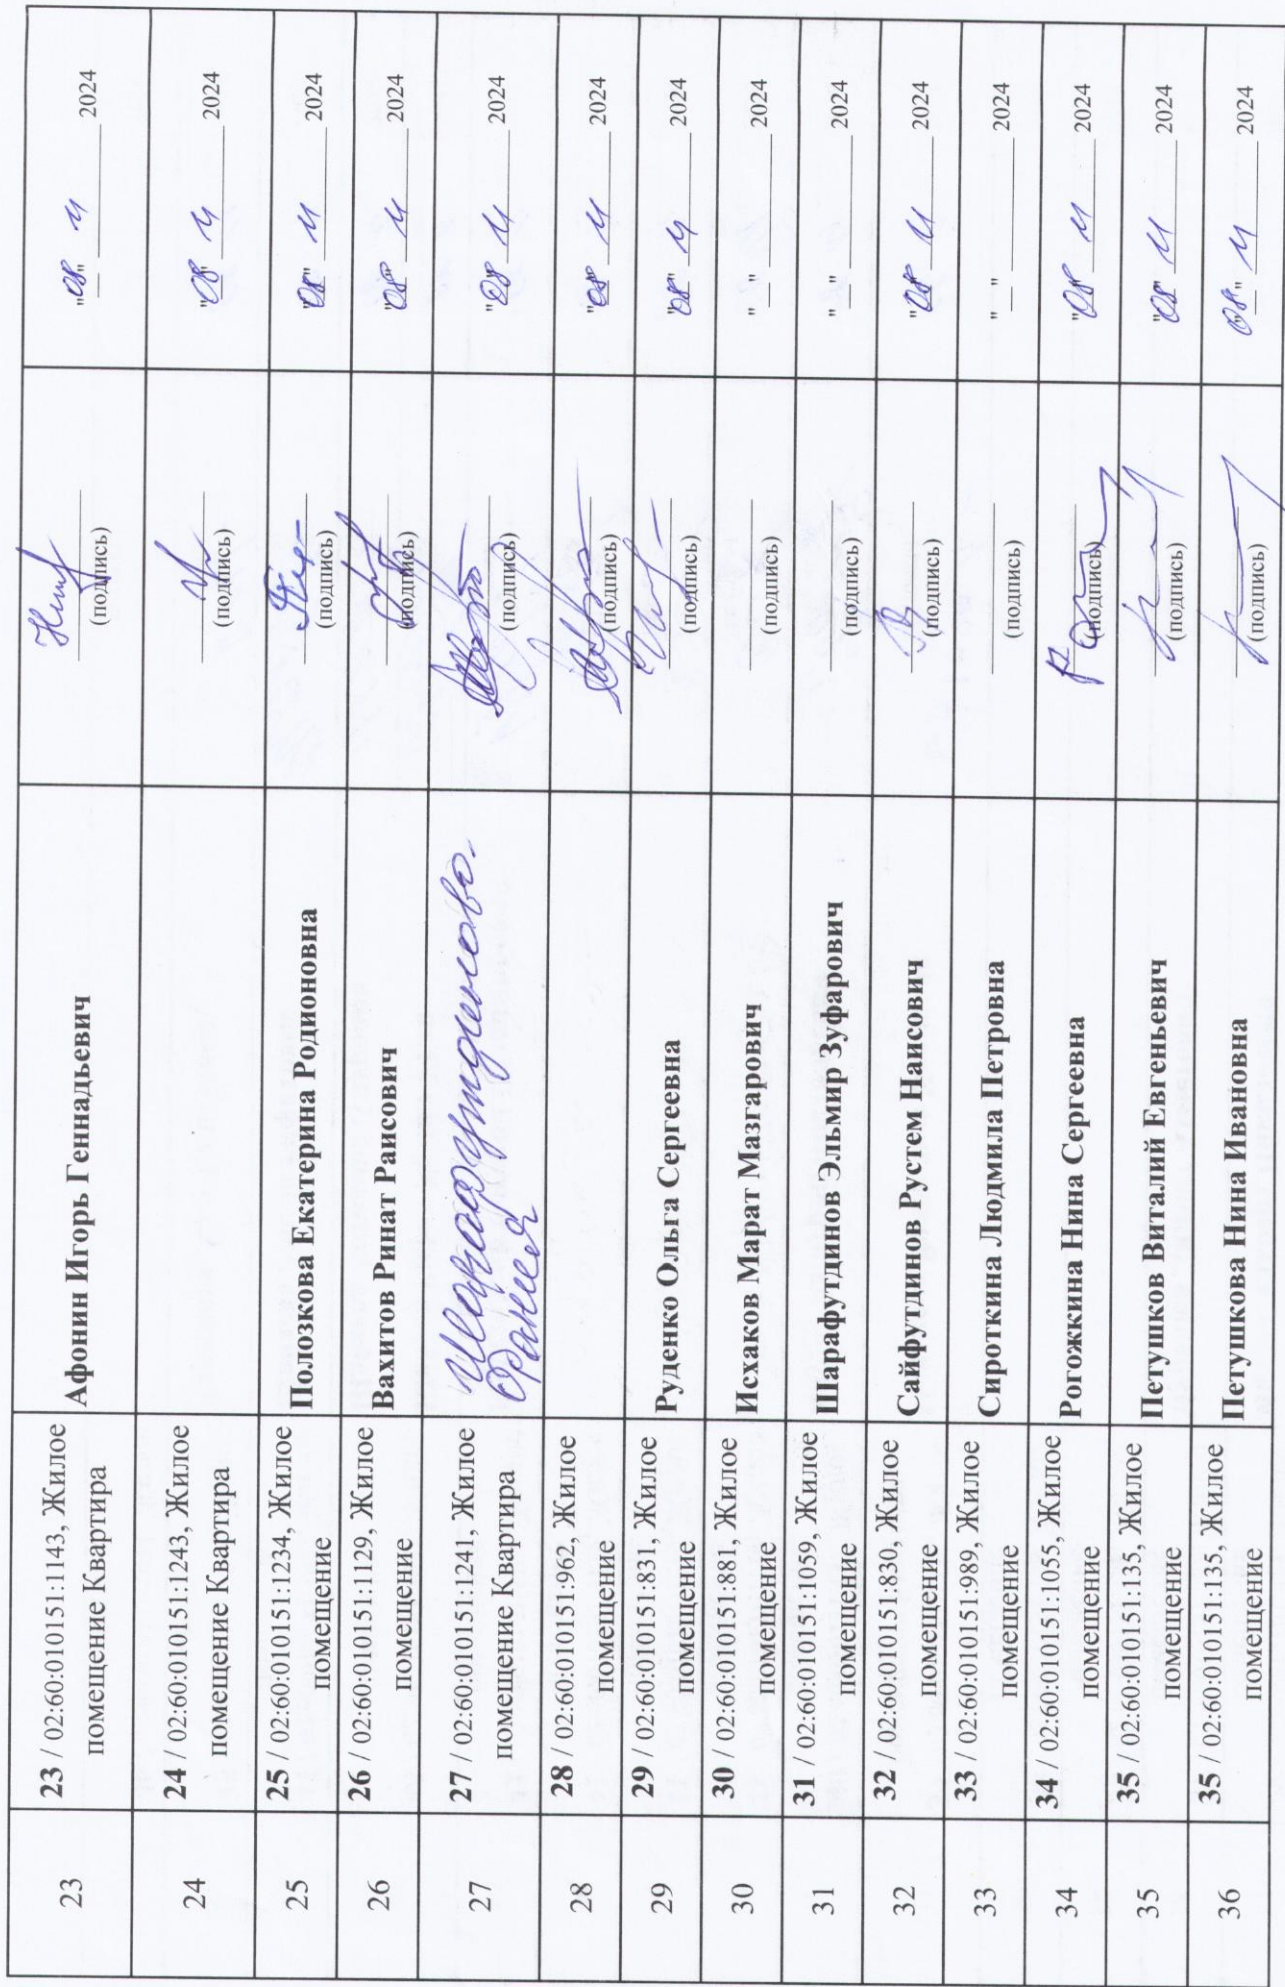 23
23 / 02:60:010151:1143, Жилое
помещение Квартира
Афонин Игорь Геннадьевич
(подпись)
"08" 11 2024
24
24 / 02:60:010151:1243, Жилое
помещение Квартира
(подпись)
"08" 11 2024
25
25 / 02:60:010151:1234, Жилое
помещение
Полозкова Екатерина Родионовна
(подпись)
"08" 11 2024
26
26 / 02:60:010151:1129, Жилое
помещение
Вахитов Ринат Раисович
(подпись)
"08" 11 2024
27
27 / 02:60:010151:1241, Жилое
помещение Квартира
Шарафутдинова
(подпись)
"08" 11 2024
28
28 / 02:60:010151:962, Жилое
помещение
(подпись)
"08" 11 2024
29
29 / 02:60:010151:831, Жилое
помещение
Руденко Ольга Сергеевна
(подпись)
"08" 11 2024
30
30 / 02:60:010151:881, Жилое
помещение
Исхаков Марат Мазгарович
(подпись)
"__" ______ 2024
31
31 / 02:60:010151:1059, Жилое
помещение
Шарафутдинов Эльмир Зуфарович
(подпись)
"__" ______ 2024
32
32 / 02:60:010151:830, Жилое
помещение
Сайфутдинов Рустем Наисович
(подпись)
"08" 11 2024
33
33 / 02:60:010151:989, Жилое
помещение
Сироткина Людмила Петровна
(подпись)
"__" ______ 2024
34
34 / 02:60:010151:1055, Жилое
помещение
Рогожкина Нина Сергеевна
(подпись)
"08" 11 2024
35
35 / 02:60:010151:135, Жилое
помещение
Петушков Виталий Евгеньевич
(подпись)
"08" 11 2024
36
35 / 02:60:010151:135, Жилое
помещение
Петушкова Нина Ивановна
(подпись)
"08" 11 2024